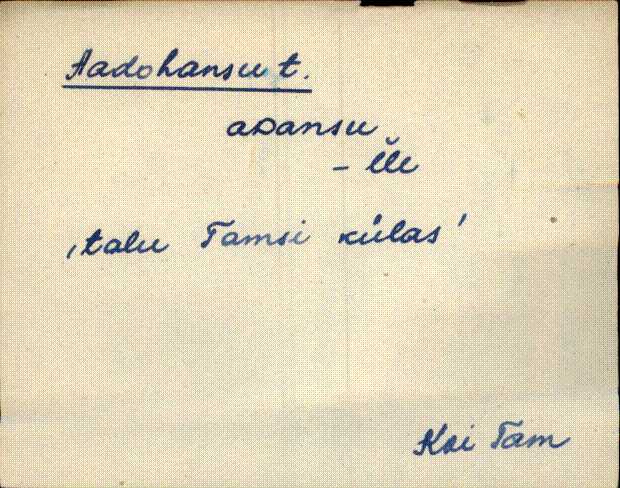 Aadohansu t.
aᴅansu
– l̆le
‚talu Tamsi külas'
Koi Tam